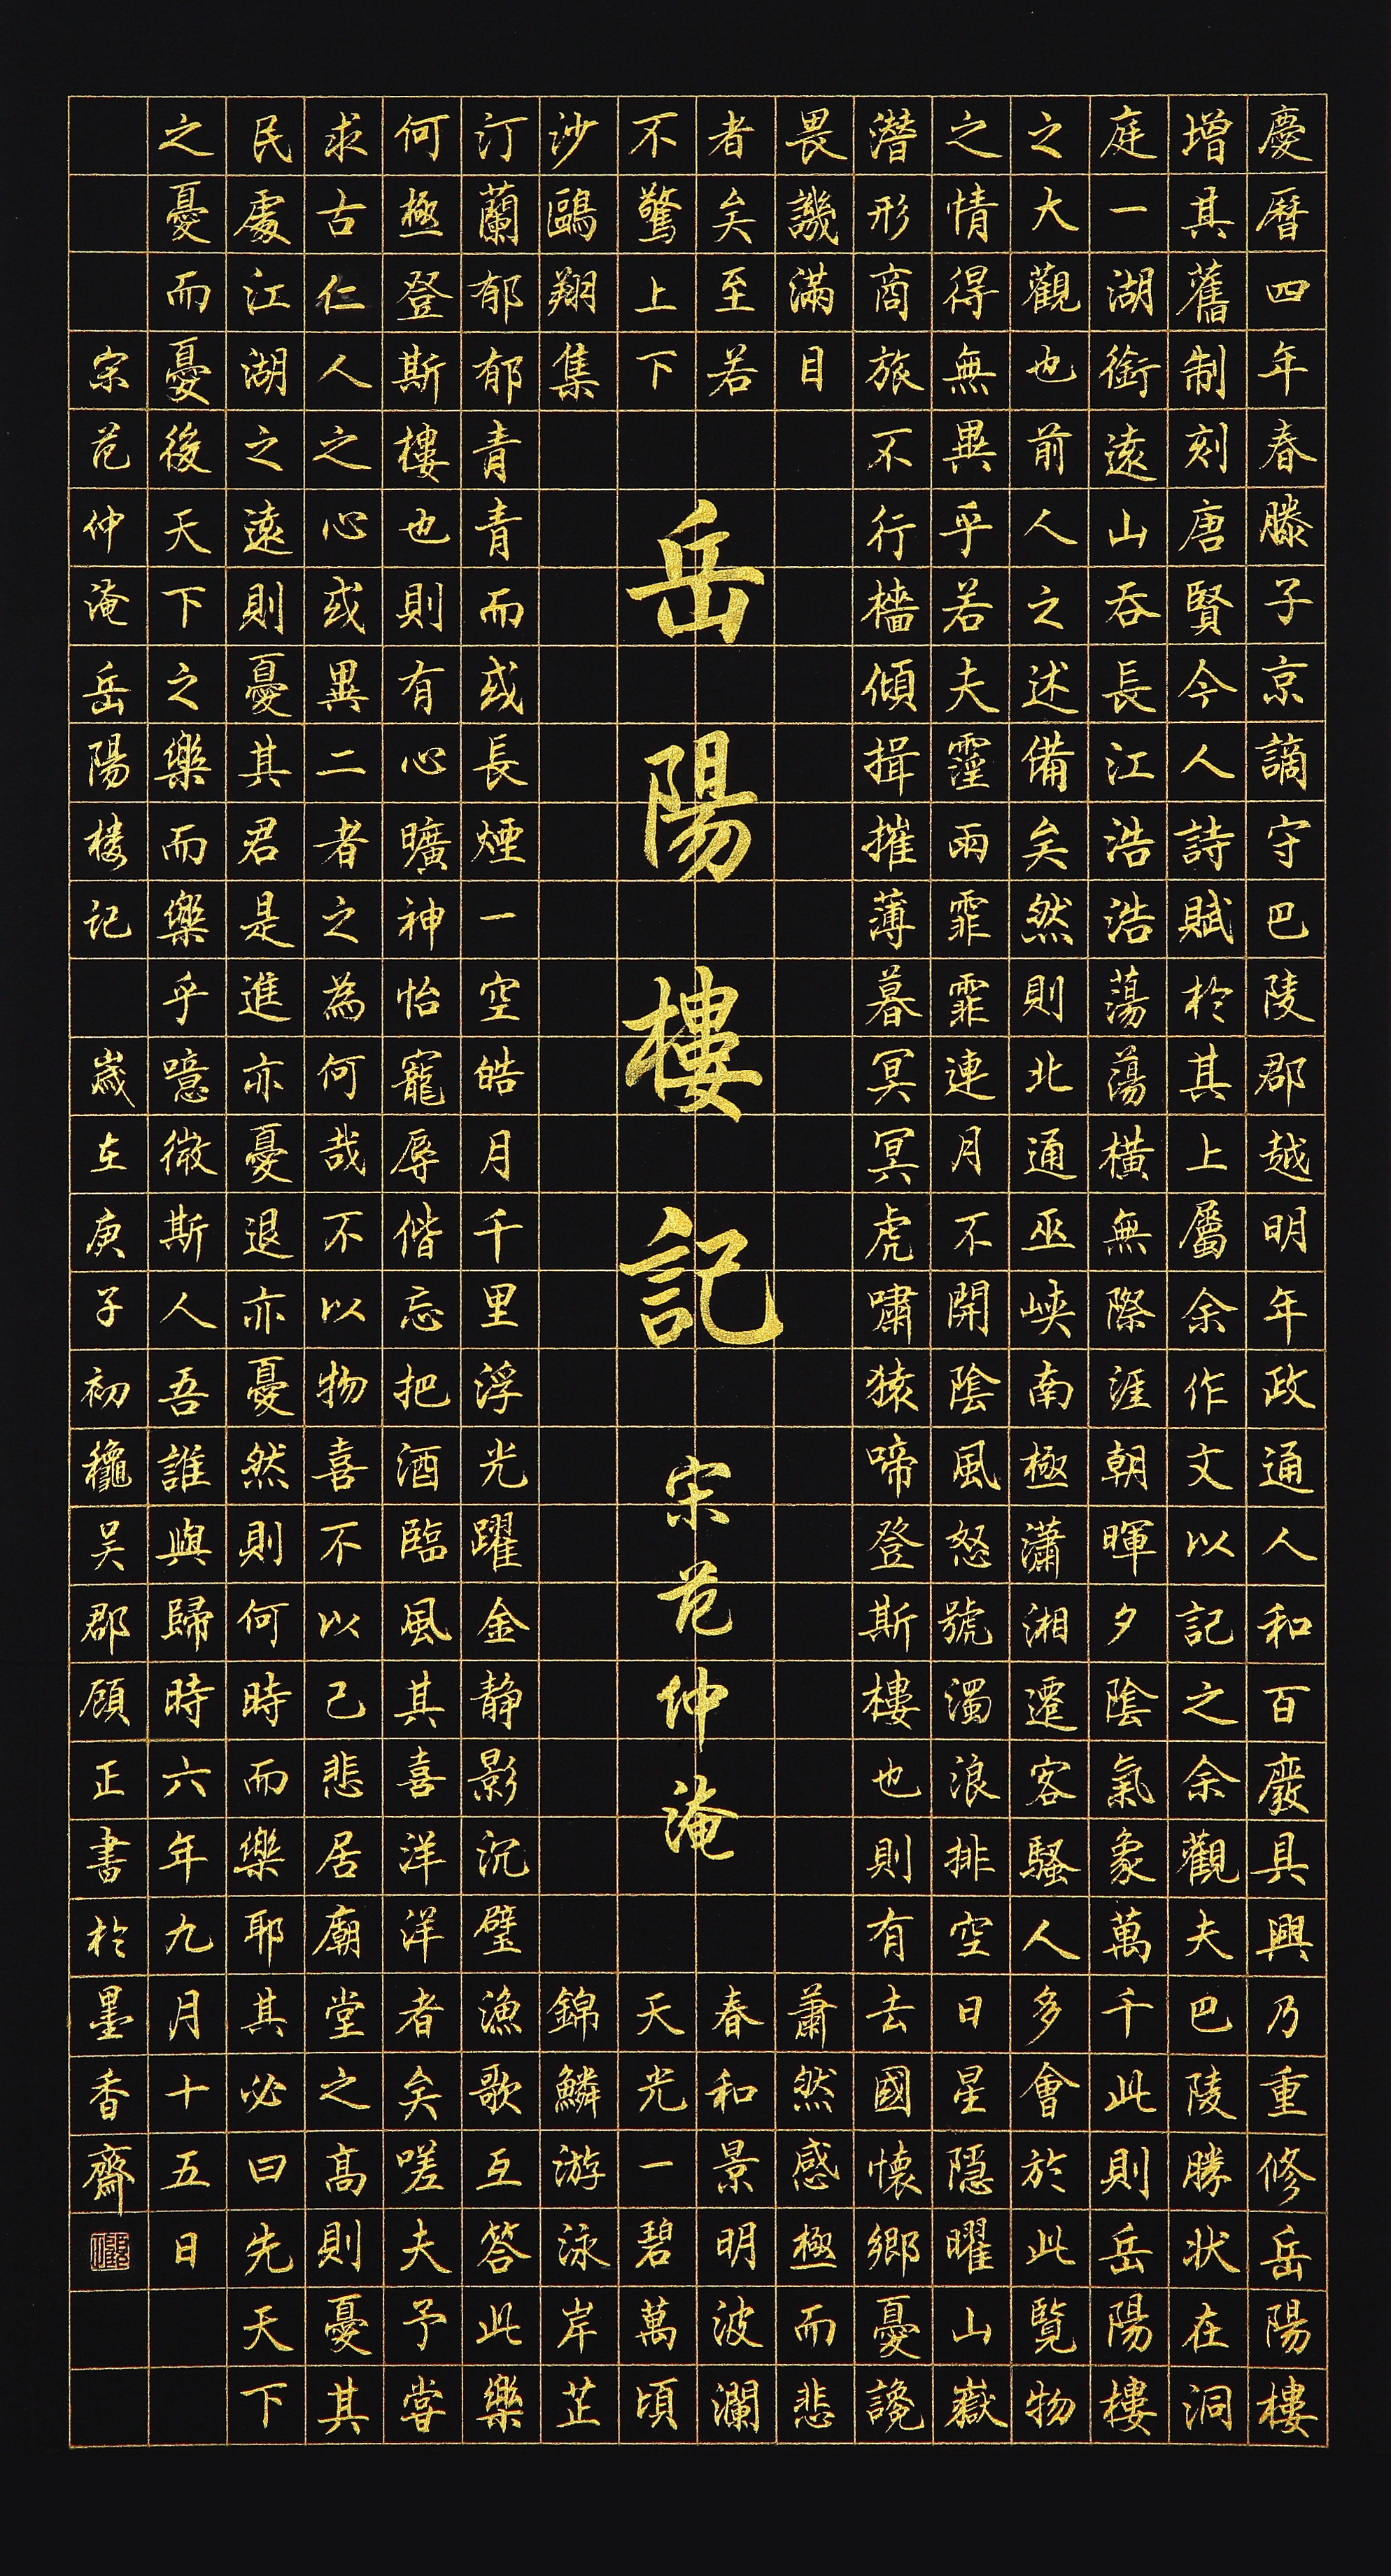 慶曆四年春滕子京謫守巴陵郡越明年政通人和百廢具興乃重修岳陽樓
增其舊制刻唐賢今人詩賦於其上屬余作文以記之余觀夫巴陵勝狀在洞
庭一湖銜遠山吞長江浩浩蕩蕩橫無際涯朝暉夕陰氣象萬千此則岳陽樓
之大觀也前人之述備矣然則北通巫峽南極瀟湘遷客騷人多會於此覽物
之情得無異乎若夫霪雨霏霏連月不開陰風怒號濁浪排空日星隱曜山嶽
潛形商旅不行檣傾揖摧薄暮冥冥虎嘯猿啼登斯樓也則有去國懷鄉憂讒
畏譏滿目蕭然感極而悲
者矣至若春和景明波瀾
不驚上下天光一碧萬頃
岳陽樓記
宋范仲淹
沙鷗翔集錦鱗游泳岸芷
汀蘭郁郁青青而或長煙一空皓月千里浮光躍金静影沉璧漁歌互答此樂
何極登斯樓也則有心曠神怡寵辱偕忘把酒臨風其喜洋洋者矣嗟夫予嘗
求古仁人之心或異二者之為何哉不以物喜不以己悲居廟堂之高則憂其
民處江湖之遠則憂其君是進亦憂退亦憂然則何時而樂耶其必曰先天下
之憂而憂後天下之樂而樂乎噫微斯人吾誰與歸時六年九月十五日
宋范仲淹岳陽楼记 歲在庚子初龝吴郡顾正書於墨香齋